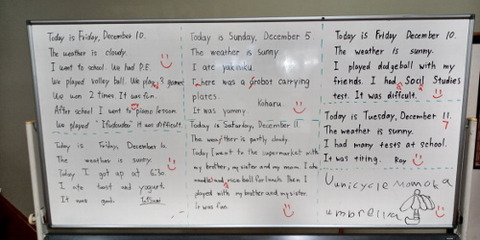 Today is Friday, December 10.
The weather is cloudy.
I went to school. We had P.E.
We played volley ball. We play 3 games
We won 2 times It was fun.
After school I went to piano lesson.
We played It was difficult.
Today is Friday, December 10
The weather is sunny.
Today I got up at 6:30
I ate toast and yogurt.
It was good.
Today is Sunday, December 5
The weather is sunny.
I ate yakiniku.
There was a robot carrying
plates.
It was yummy Koharu
Today is Saturday, December 11
The weather is partly cloudy.
Today I want to the supermarket with
my brother, my sister and my mom. I ate
and ball for lunch. Then I
played with my brother and my sister.
It was fun.
Today is Friday December 10.
The weather is sunny.
I played dodgeball with my
friends. I had a Socil Studies
test. It was difficult.
Today is Tuesday, December 11.
7
The weather is sunny.
I had many tests at school.
It was tiring. Ray
Uunicycle momoka
umbrella